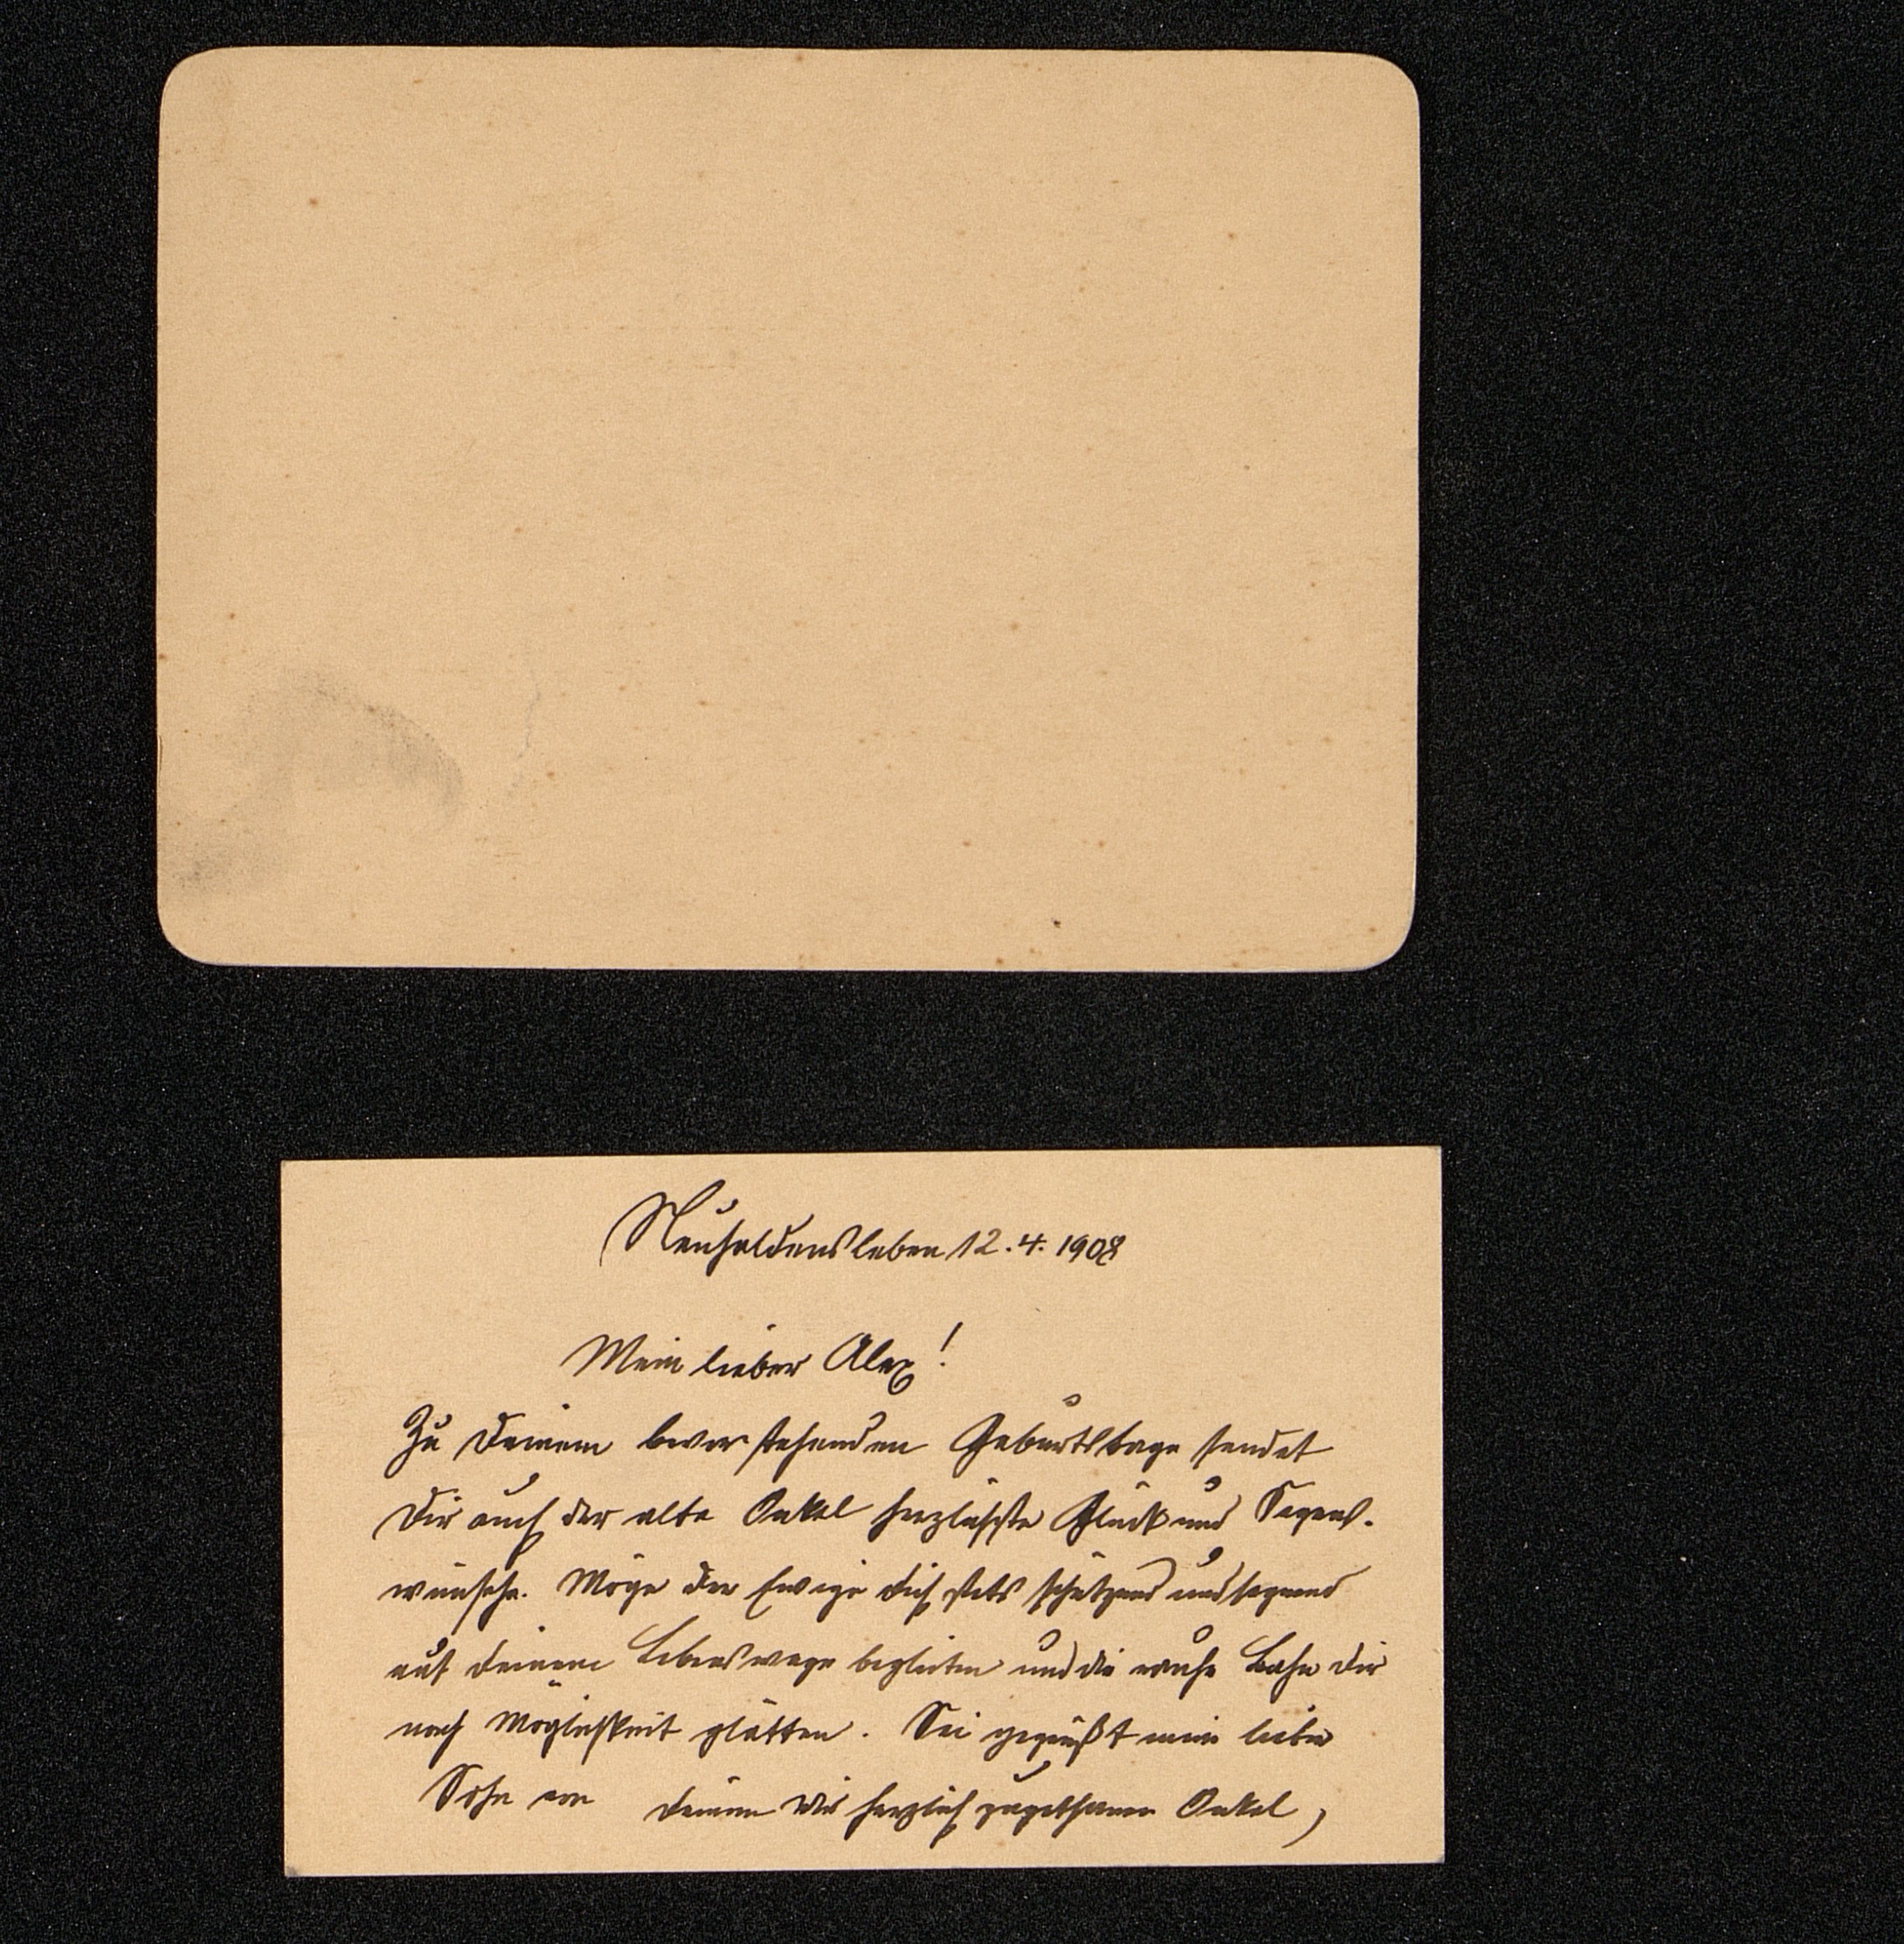 Neuhaldensleben 12.4.1908
Mein lieber Alex!
Zu Deinem bevorstehenden Geburtstage sendet
Dir auch der alte Onkel herzlichste Glück und Segens-
wünsche. Möge der Ewige dich stets schützend und segnend
auf deinem Lebenswege begleiten und die rauhe Bahn dir
nach Möglichkeit glätten. Sei gegrüßt mein lieber
Sohn von deinem dir herzlich zugethanen Onkel,